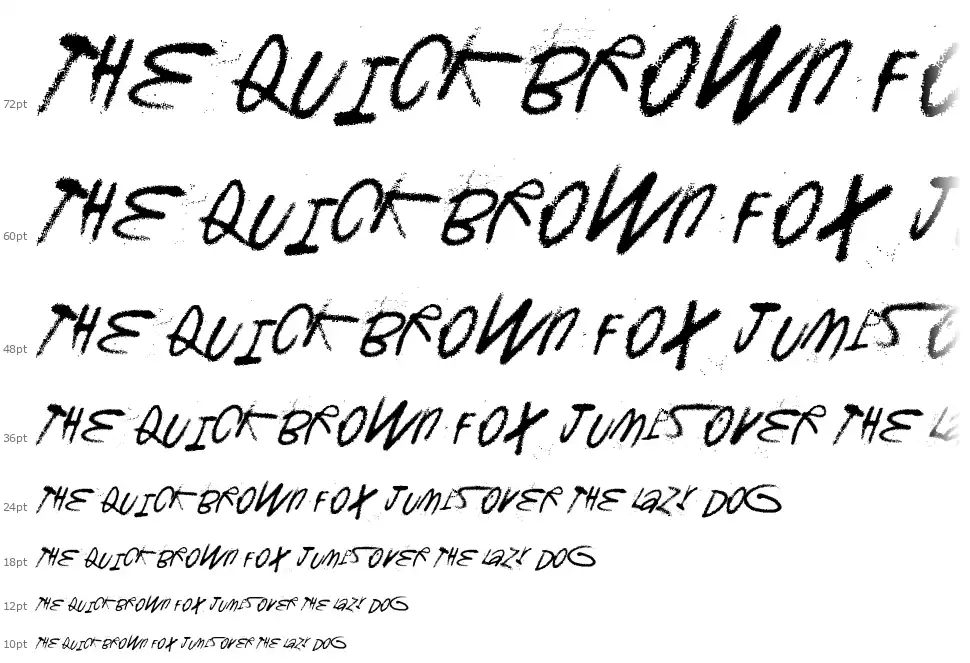 72pt THE QUICK BROWN FO
60pt THE QUICK BROWN FOX J
48pt THE QUICK BROWN FOX JUMPS O
36pt THE QUICK BROWN FOX JUMPS OVER THE L
24pt THE QUICK BROWN FOX JUMPS OVER THE LAZY DOG
18pt THE QUICK BROWN FOX JUMPS OVER THE LAZY DOG
12pt THE QUICK BROWN FOX JUMPS OVER THE LAZY DOG
10pt THE QUICK BROWN FOX JUMPS OVER THE LAZY DOG